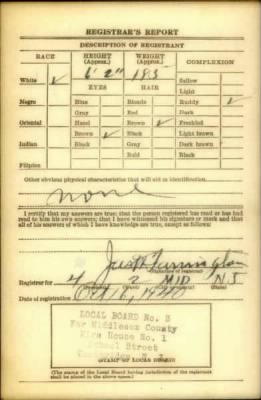 REGISTRAR'S REPORT
DESCRIPTION OF REGISTRANT
RACE HEIGHT (Approx.) WEIGHT (Approx.) COMPLEXION
6' 2" 185
White ✓ Sallow
EYES HAIR Light
Negro Blue Blonde Ruddy ✓
Gray Red Dark
Oriental Hazel Brown ✓ Freckled
Brown ✓ Black Light brown
Indian Black Gray Dark brown
Bald Black
Filipino
Other obvious physical characteristics that will aid in identification.
none
I certify that my answers are true; that the person registered has read or has had
read to him his own answers; that I have witnessed his signature or mark and that
all of his answers of which I have knowledge are true, except as follows:
(Signature of registrar)
Registrar for 2 MID N J
Date of registration Oct 16, 1940
LOCAL BOARD No. 3
For Middlesex County
Fire House No. 1
School Street
N. J.
(STAMP OF LOCAL BOARD)
(The stamp of the Local Board having jurisdiction of the registrant
shall be placed in the above space.)